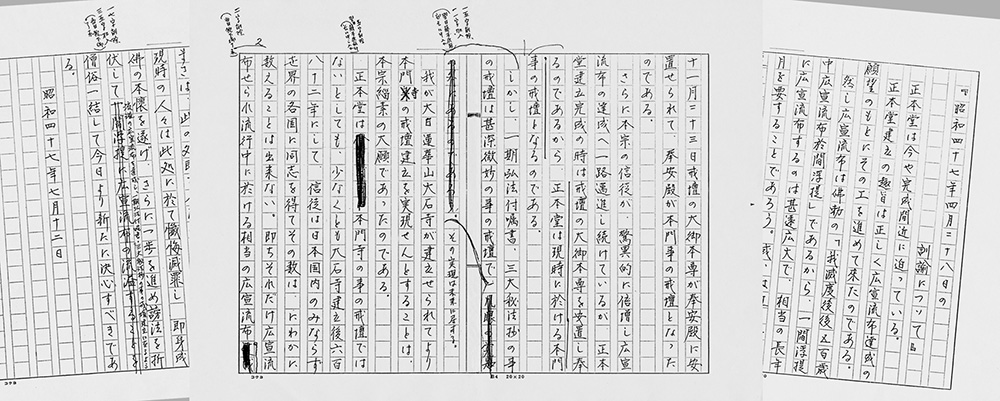 『昭和四十七年四月二十八日の
訓諭について』
正本堂は今や完成間近に迫っている。
正本堂建立の趣旨は正しく広宣流布達成の
願望のもとにその工を進めて来たのである。
然し広宣流布は佛勅の「我滅度後後五百歳
中広宣流布於閻浮提」であるから、一閻浮提
に広宣流布するのは甚遠広大で、相当の長年
月を要することであろう。
十一月二十三日戒壇の大御本尊が奉安殿に安
置せられて、奉安殿が本門事の戒壇となった
のである。
さらに本宗の信徒が、驚異的に倍増し広宣
流布の達成へ一路邁進し続けているが、正本
堂建立完成の時は戒壇の大御本尊を安置し奉
るのであるから、正本堂は現時に於ける本門
事の戒壇となるのである。
しかし、一期弘法付嘱書、三大秘法抄の事
の戒壇は甚深微妙の事の戒壇で、
その実現は未来に属す。
我が大日蓮華山大石寺が建立せられてより
本門事の戒壇建立を実現せんとすることは、
本宗緇素の大願であったのである。
正本堂は 本門寺の事の戒壇では
ないとしても、少なくとも大石寺建立後六百
八十二年にして、信徒は日本国内のみならず
世界の各国に同志を得てその数は、にわかに
数えることは出来ない。即ちそれだけ広宣流
布せられ流行中に於ける相当の広宣流布
現時の人々は此処に於て懺悔滅罪し、即身成
佛の本懐を遂げ、さらに一歩を進め謗法を折
伏して
僧俗一結して今日より新たに決心すべきであ
る。
昭和四十七年七月十二日
コクヨ
コクヨ
20×20
コクヨ